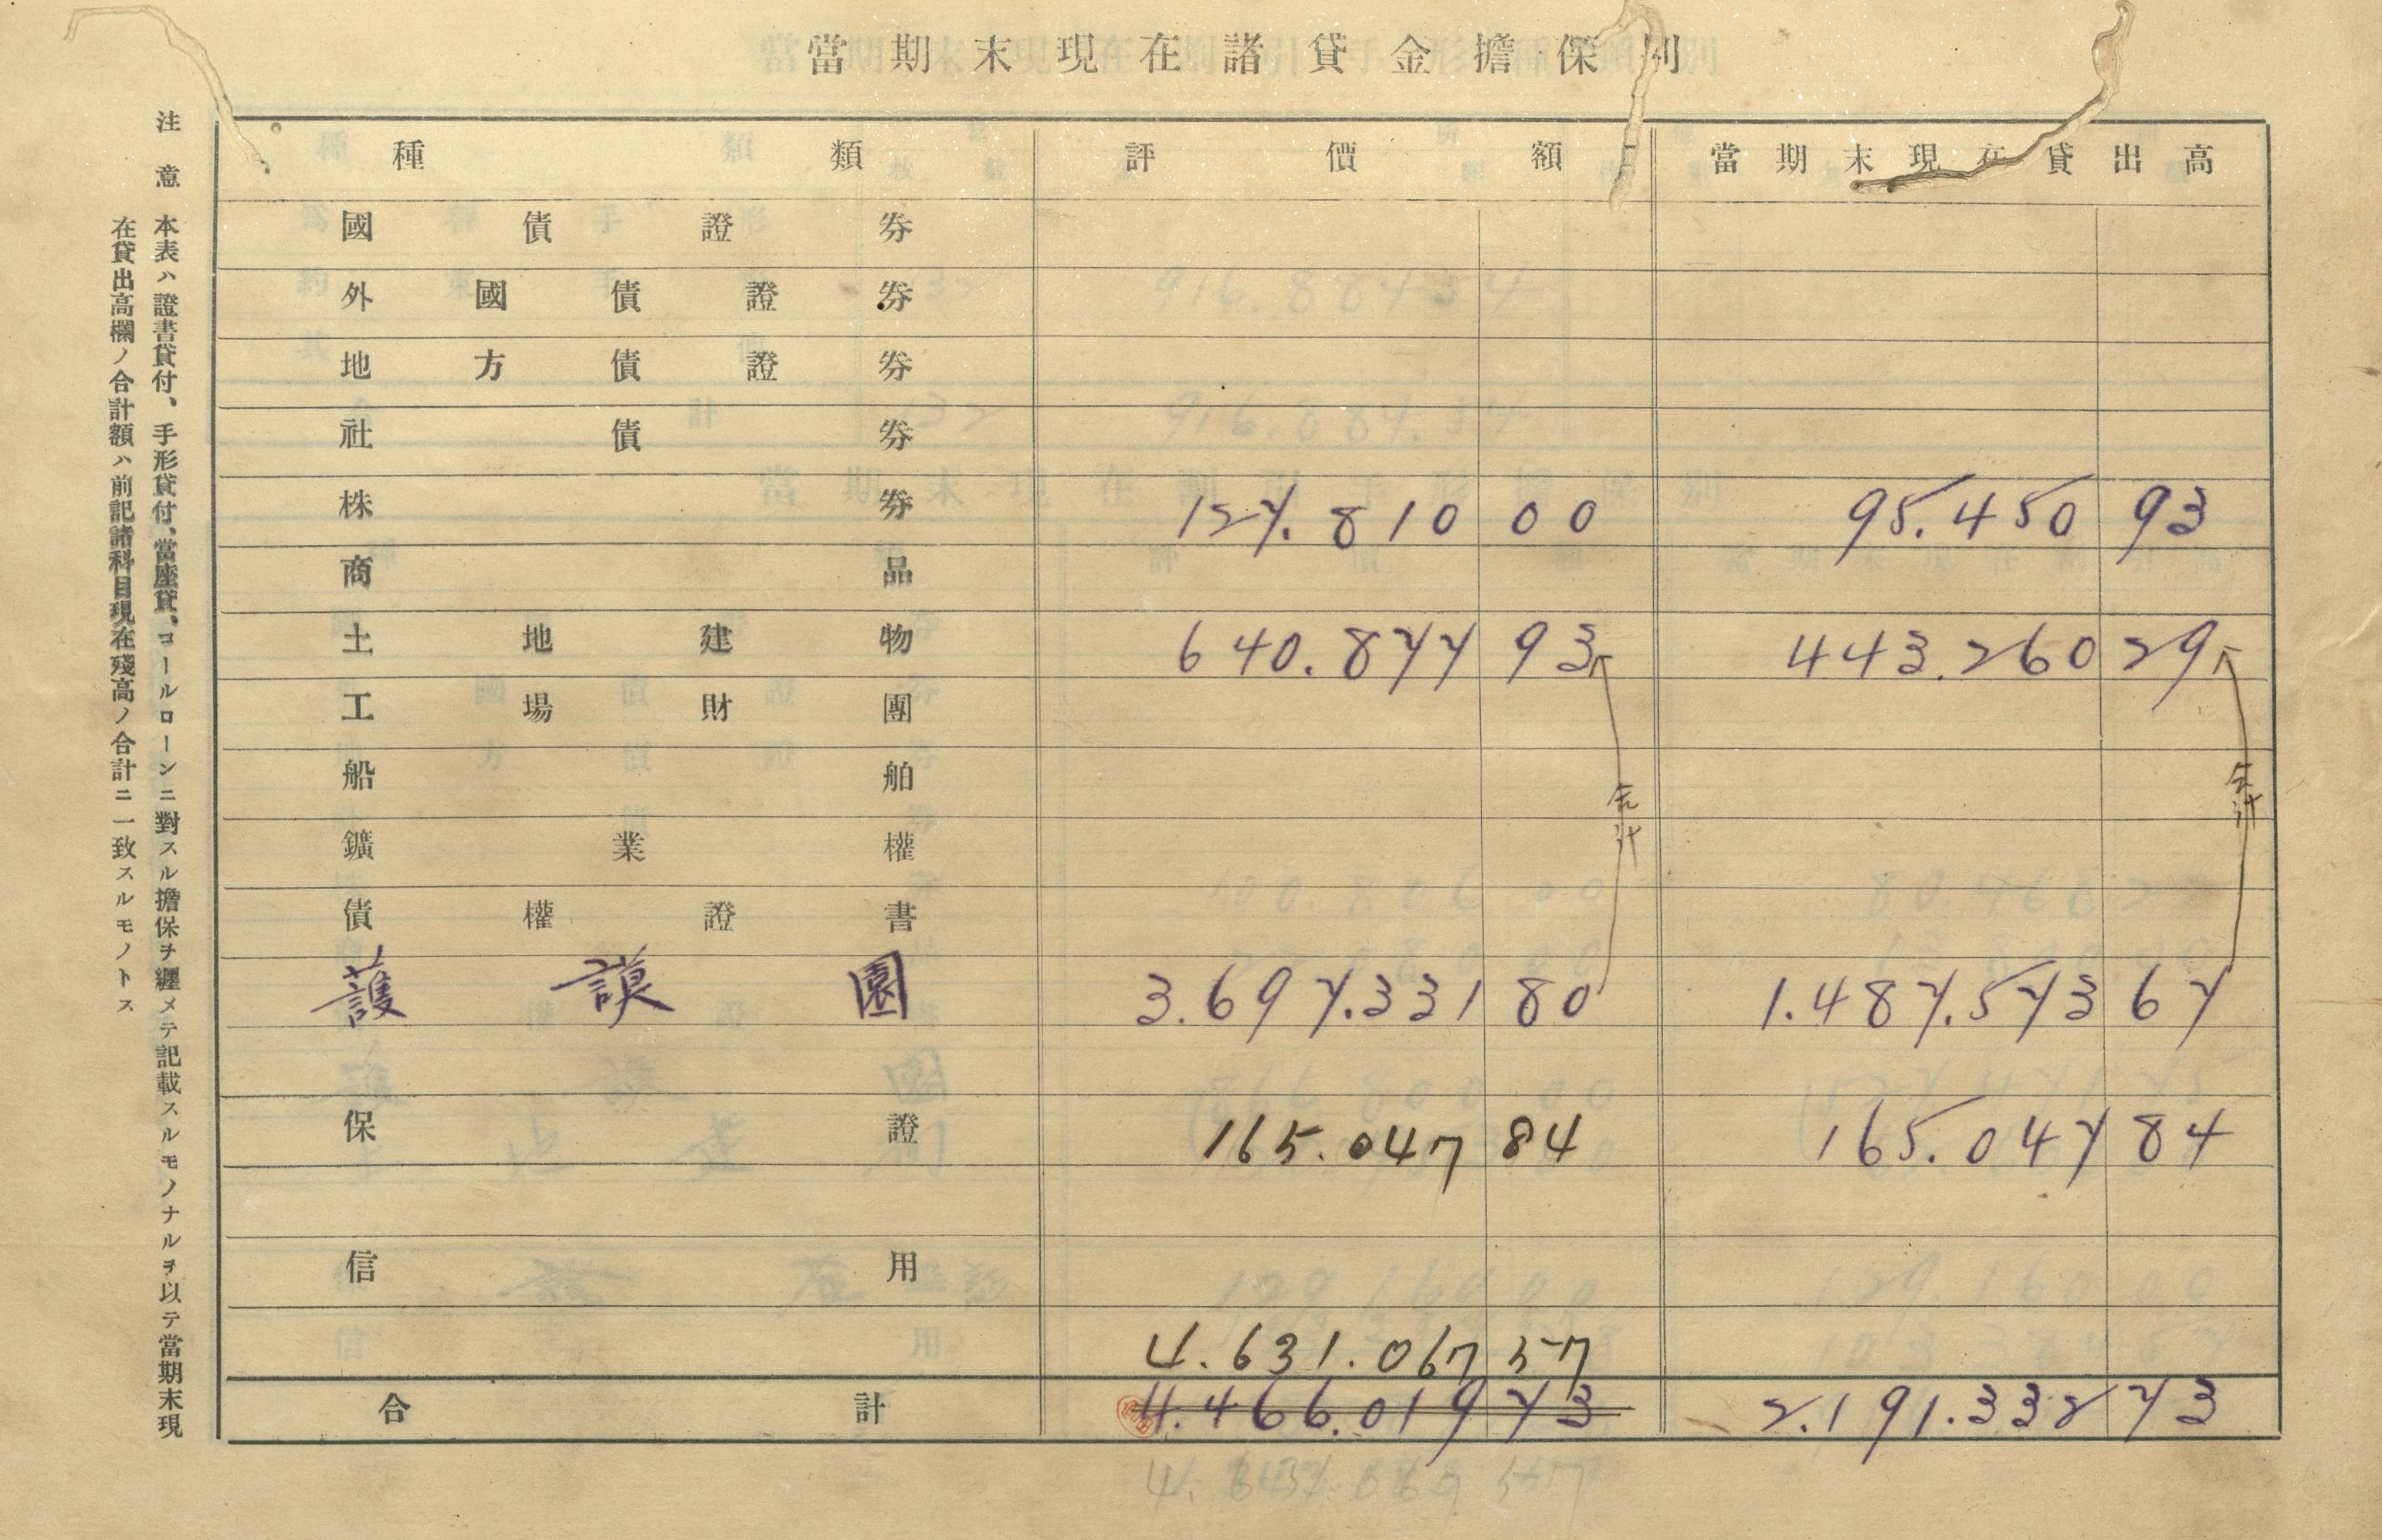 當期末現在諸貸金擔保別
種類 評價額 當期末現在貸出高
國債證券
外國債證券
地方債證券
社債券
株券 127.810 00 95.450 93
商品
土地建物 640.877 93 443.260 29
工場財團
船舶
合計 合計
鑛業權
債權證書
護謨園 3.697.331 80 1.487.573 67
保證 165.047 84 165.047 84
信用
4.631.067 57
合計 4.466.019 73 2.191.332 73
注意 本表ハ證書貸付、手形貸付、當座貸、コールローンニ對スル擔保ヲ纒メテ記載スルモノナルヲ以テ當期末現
在貸出高欄ノ合計額ハ前記諸科目現在殘高ノ合計ニ一致スルモノトス